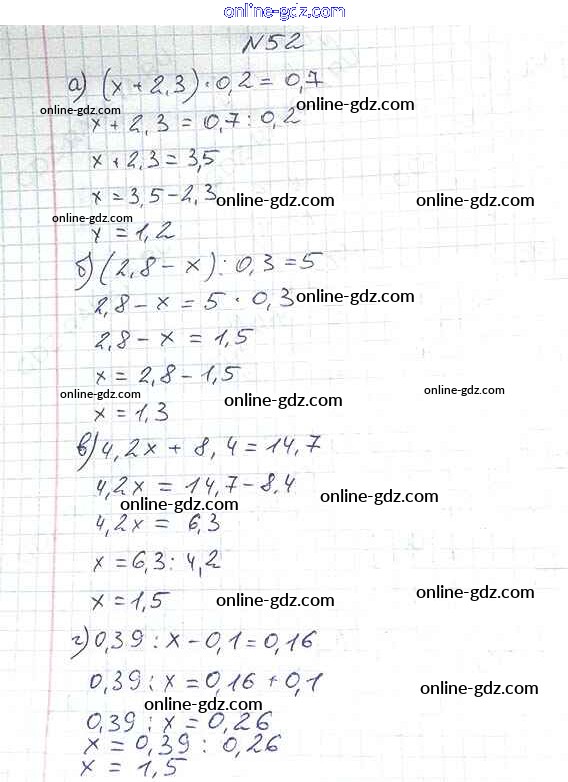 online-gdz.com
N52
а) (x + 2,3) · 0,2 = 0,7
online-gdz.com
x + 2,3 = 0,7 : 0,2
online-gdz.com
x + 2,3 = 3,5
x = 3,5 - 2,3
online-gdz.com online-gdz.com
online-gdz.com
x = 1,2
б) (2,8 - x) : 0,3 = 5
2,8 - x = 5 · 0,3
online-gdz.com
2,8 - x = 1,5
x = 2,8 - 1,5
online-gdz.com online-gdz.com online-gdz.com
x = 1,3
в) 4,2x + 8,4 = 14,7
4,2x = 14,7 - 8,4
online-gdz.com online-gdz.com
4,2x = 6,3
x = 6,3 : 4,2
x = 1,5
online-gdz.com online-gdz.com
г) 0,39 : x - 0,1 = 0,16
0,39 : x = 0,16 + 0,1
online-gdz.com online-gdz.com
0,39 : x = 0,26
x = 0,39 : 0,26
x = 1,5